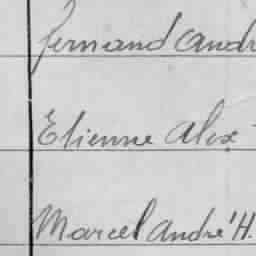 Fernand Andr
Etienne Alex
Marcel André H.